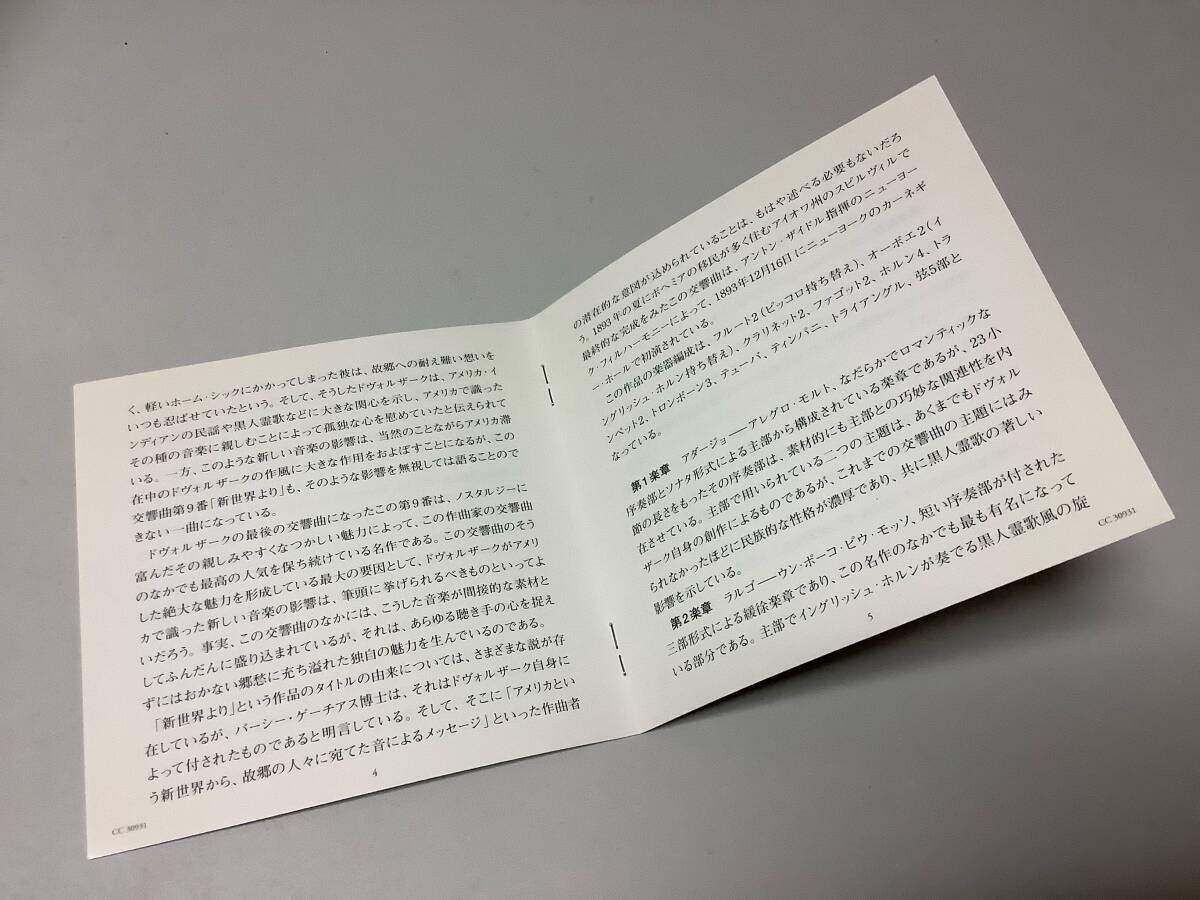 く、軽いホーム・シックにかかってしまった彼は、故郷への耐え難い想いを
いつも忍ばせていたという。そして、そうしたドヴォルザークは、アメリカ・イ
ンディアンの民謡や黒人霊歌などに大きな関心を示し、アメリカで識った
その種の音楽に親しむことによって孤独な心を慰めていたと伝えられて
いる。一方、このような新しい音楽の影響は、当然のことながらアメリカ滞
在中のドヴォルザークの作風に大きな作用をおよぼすことになるが、この
交響曲第9番「新世界より」も、そのような影響を無視しては語ることので
きない一曲になっている。
ドヴォルザークの最後の交響曲になったこの第9番は、ノスタルジーに
富んだその親しみやすくなつかしい魅力によって、この作曲家の交響曲
のなかでも最高の人気を保ち続けている名作である。この交響曲のそう
した絶大な魅力を形成している最大の要因として、ドヴォルザークがアメリ
カで識った新しい音楽の影響は、筆頭に挙げられるべきものといってよ
いだろう。事実、この交響曲のなかには、こうした音楽が間接的な素材と
してふんだんに盛り込まれているが、それは、あらゆる聴き手の心を捉え
ずにはおかない郷愁に充ち溢れた独自の魅力を生んでいるのである。
「新世界より」という作品のタイトルの由来については、さまざまな説が存
在しているが、パーシー・ゲーチアス博士は、それはドヴォルザーク自身に
よって付されたものであると明言している。そして、そこに「アメリカとい
う新世界から、故郷の人々に宛てた音によるメッセージ」といった作曲者
4
CC 30931
の潜在的な意図が込められていることは、もはや述べる必要もないだろ
う。1893年の夏にボヘミアの移民が多く住むアイオワ州のスピルヴィルで
最終的な完成をみたこの交響曲は、アントン・ザイドル指揮のニューヨー
ク・フィルハーモニーによって、1893年12月16日にニューヨークのカーネギ
ー・ホールで初演されている。
この作品の楽器編成は、フルート2(ピッコロ持ち替え)、オーボエ2(イ
ングリッシュ・ホルン持ち替え)、クラリネット2、ファゴット2、ホルン4、トラ
ンペット2、トロンボーン3、テューバ、ティンパニ、トライアングル、弦5部と
なっている。
第1楽章 アダージョ―アレグロ・モルト、なだらかでロマンティックな
序奏部とソナタ形式による主部から構成されている楽章であるが、23小
節の長さをもったその序奏部は、素材的にも主部との巧妙な関連性を内
在させている。主部で用いられている二つの主題は、あくまでもドヴォル
ザーク自身の創作によるものであるが、これまでの交響曲の主題にはみ
られなかったほどに民族的な性格が濃厚であり、共に黒人霊歌の著しい
影響を示している。
第2楽章 ラルゴ―ウン・ポーコ・ピウ・モッソ、短い序奏部が付された
三部形式による緩徐楽章であり、この名作のなかでも最も有名になって
いる部分である。主部でイングリッシュ・ホルンが奏でる黒人霊歌風の旋
5
CC 30931